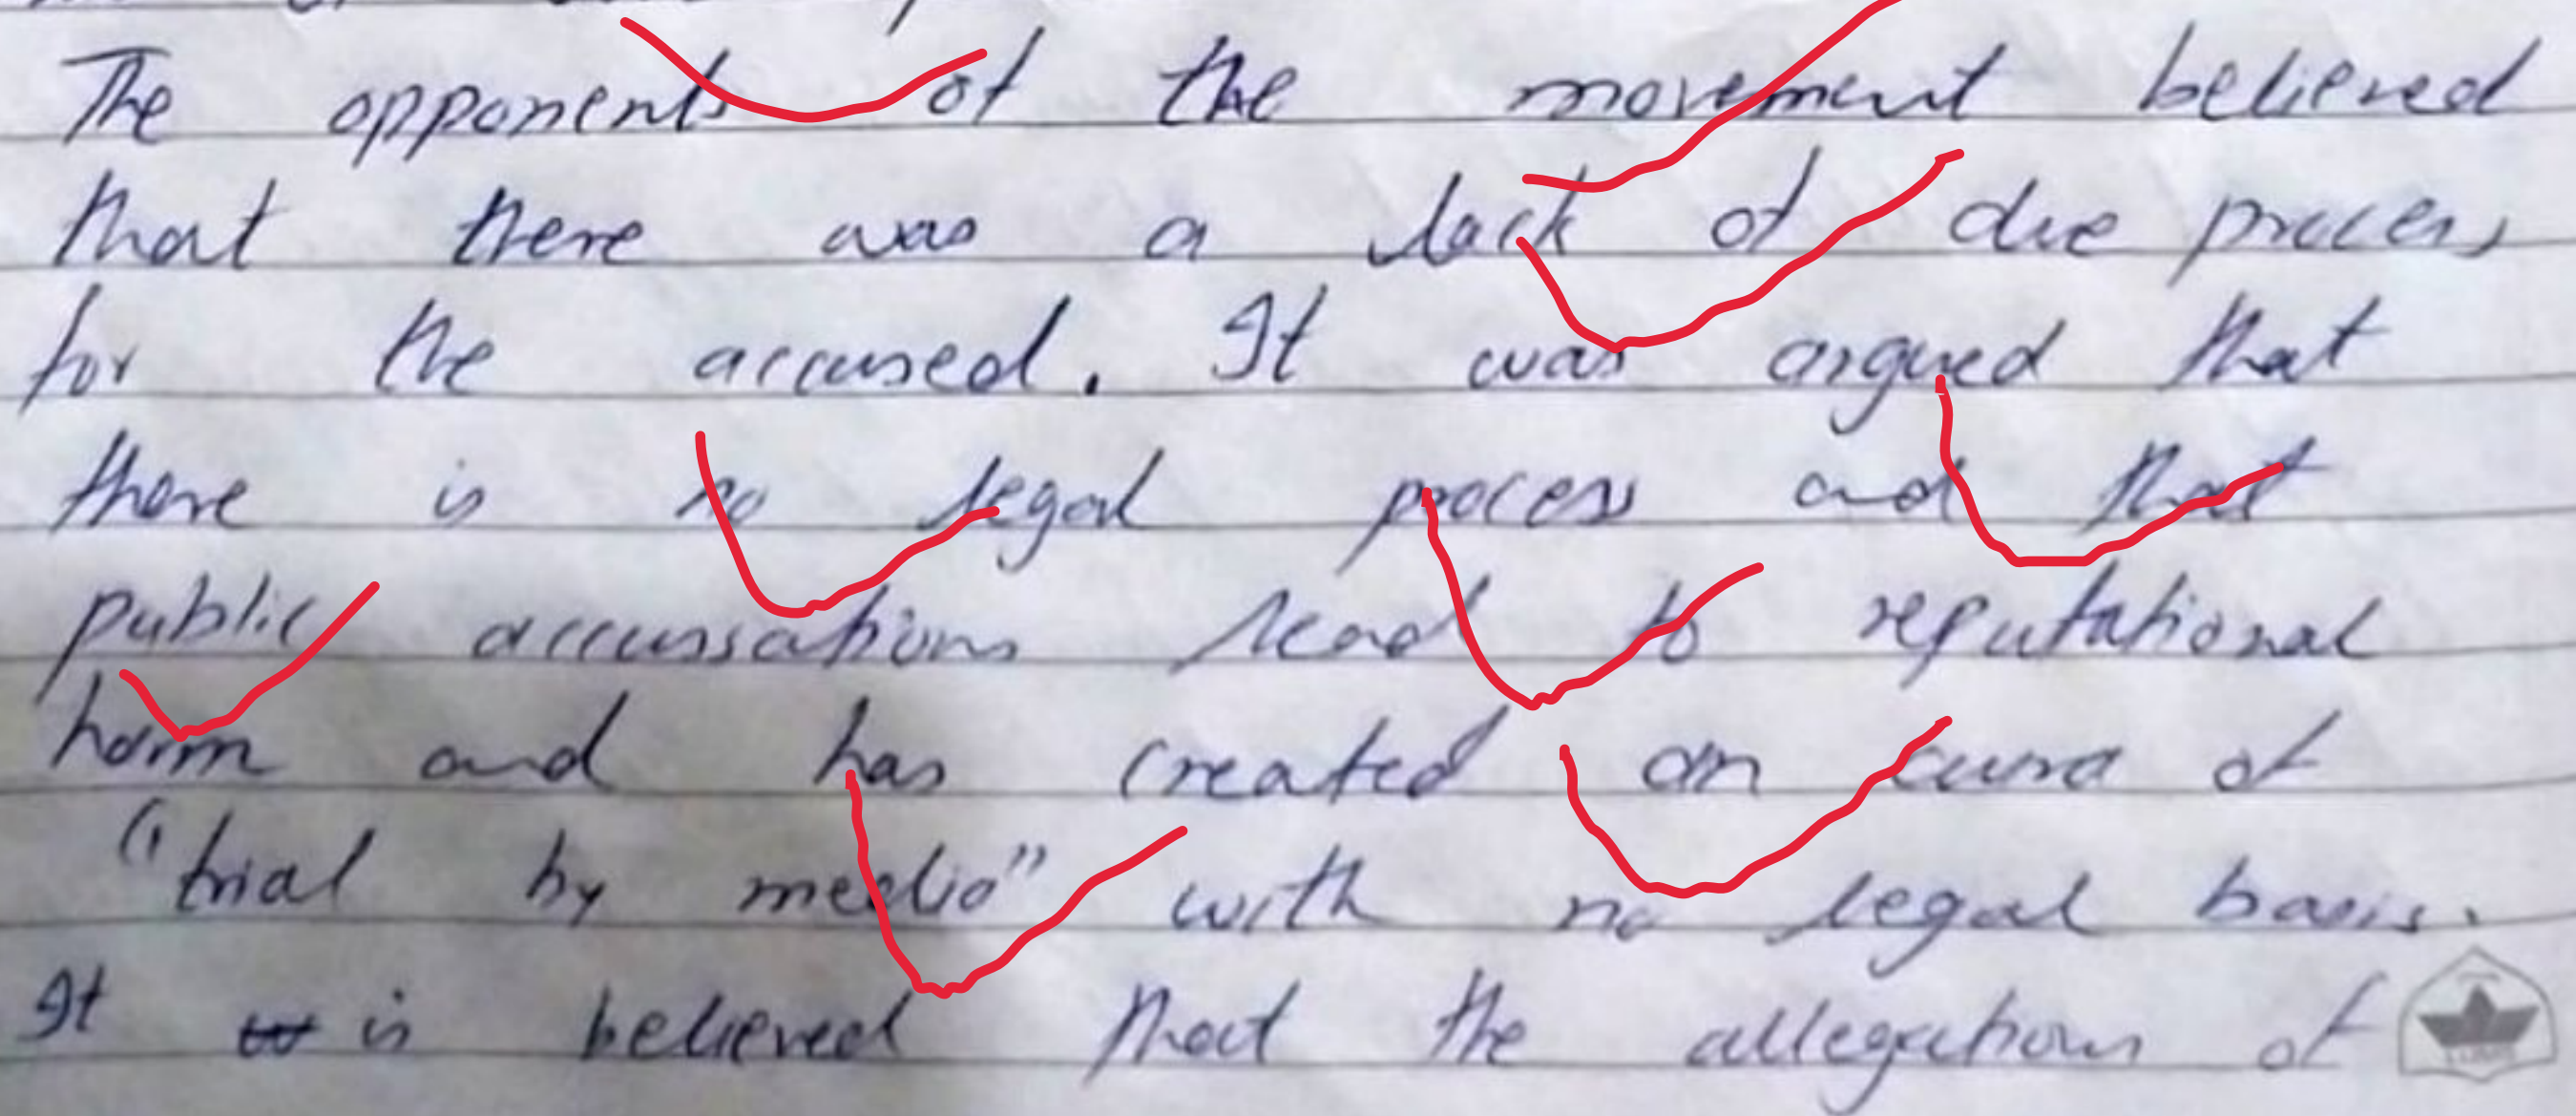 The opponents of the movement believed
that there was a lack of due process
for the accused. It was argued that
there is no legal process and that
public accussations lead to reputational
harm and has created an of
"trial by media" with no legal basis.
It is believed that the allegations of